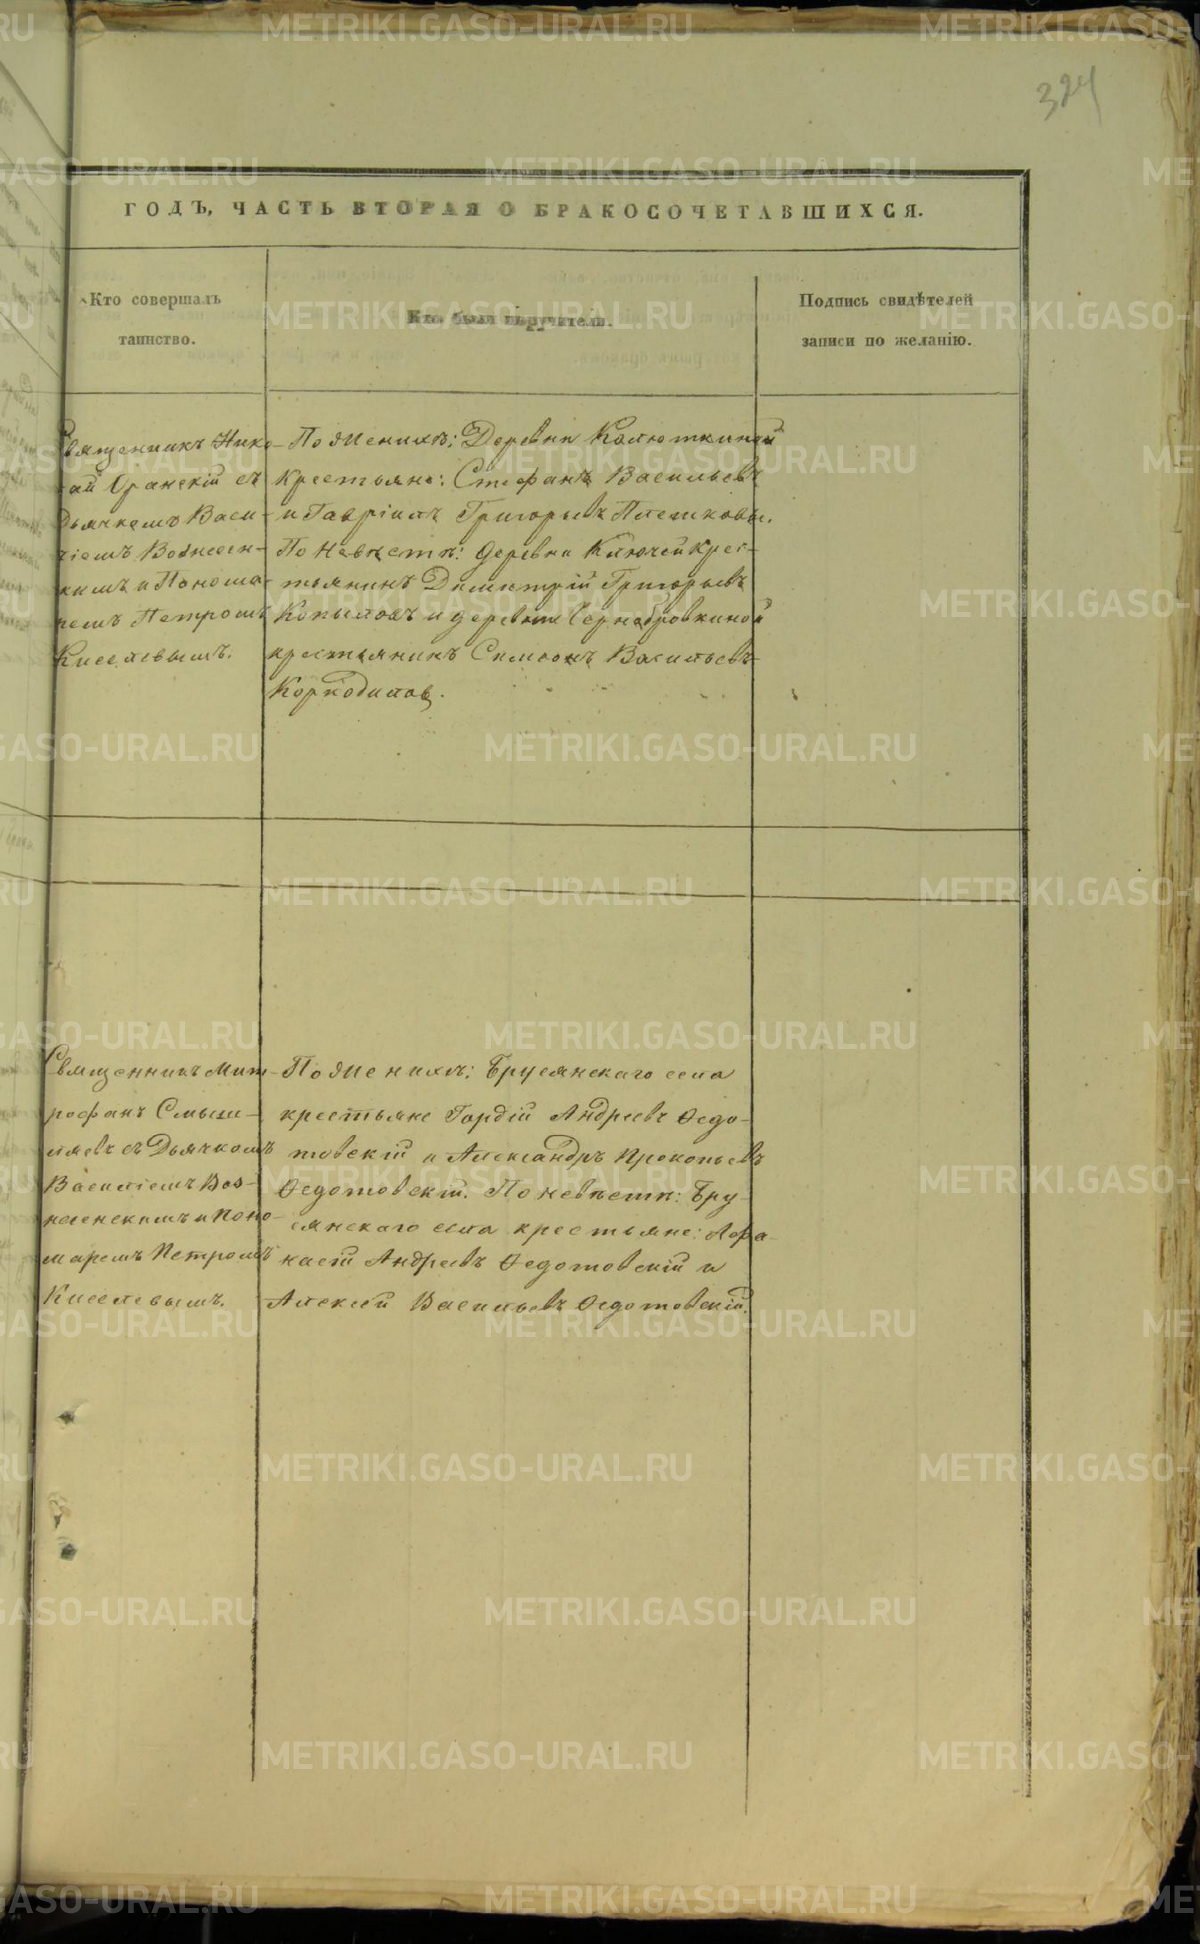 324
ГОДЪ, ЧАСТЬ ВТОРАЯ О БРАКОСОЧЕТАВШИХСЯ.
Кто совершалъ
таинство.
Кто были поручители.
Подпись свидѣтелей
записи по желанію.
Священникъ Нико-
лай Оранскій съ
дьячкомъ Васи-
ліемъ Вознесен-
скимъ и Понома-
ремъ Петромъ
Киселевымъ.
По Женихѣ: Деревни Колюткиной
крестьяне: Стефанъ Васильевъ
и Гавріилъ Григорьевъ Плешковы.
По Невѣстѣ: деревни Ключей крес-
тьянинъ Димитрій Григорьевъ
Копыловъ и деревни Чернобровкиной
крестьянинъ Симеонъ Васильевъ
Коркодиловъ.
Священникъ Мит-
рофанъ Смыш-
ляевъ съ Дьячкомъ
Василіемъ Воз-
несенскимъ и Поно-
маремъ Петромъ
Киселевымъ.
По Женихѣ: Брусянскаго села
крестьяне Гордій Андреевъ Ѳедо-
товскій и Александръ Прокопьевъ
Ѳедотовскій. По невѣстѣ: Бру-
сянскаго села крестьяне:
Андреевъ Ѳедотовскій и
Алексѣй Васильевъ Ѳедотовскій.
METRIKI.GASO-URAL.RU